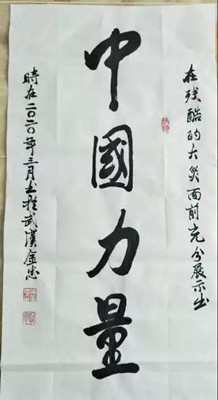 在残酷的大災面前充分展示出
中國力量
時在二〇二〇年三月書於武漢金忠